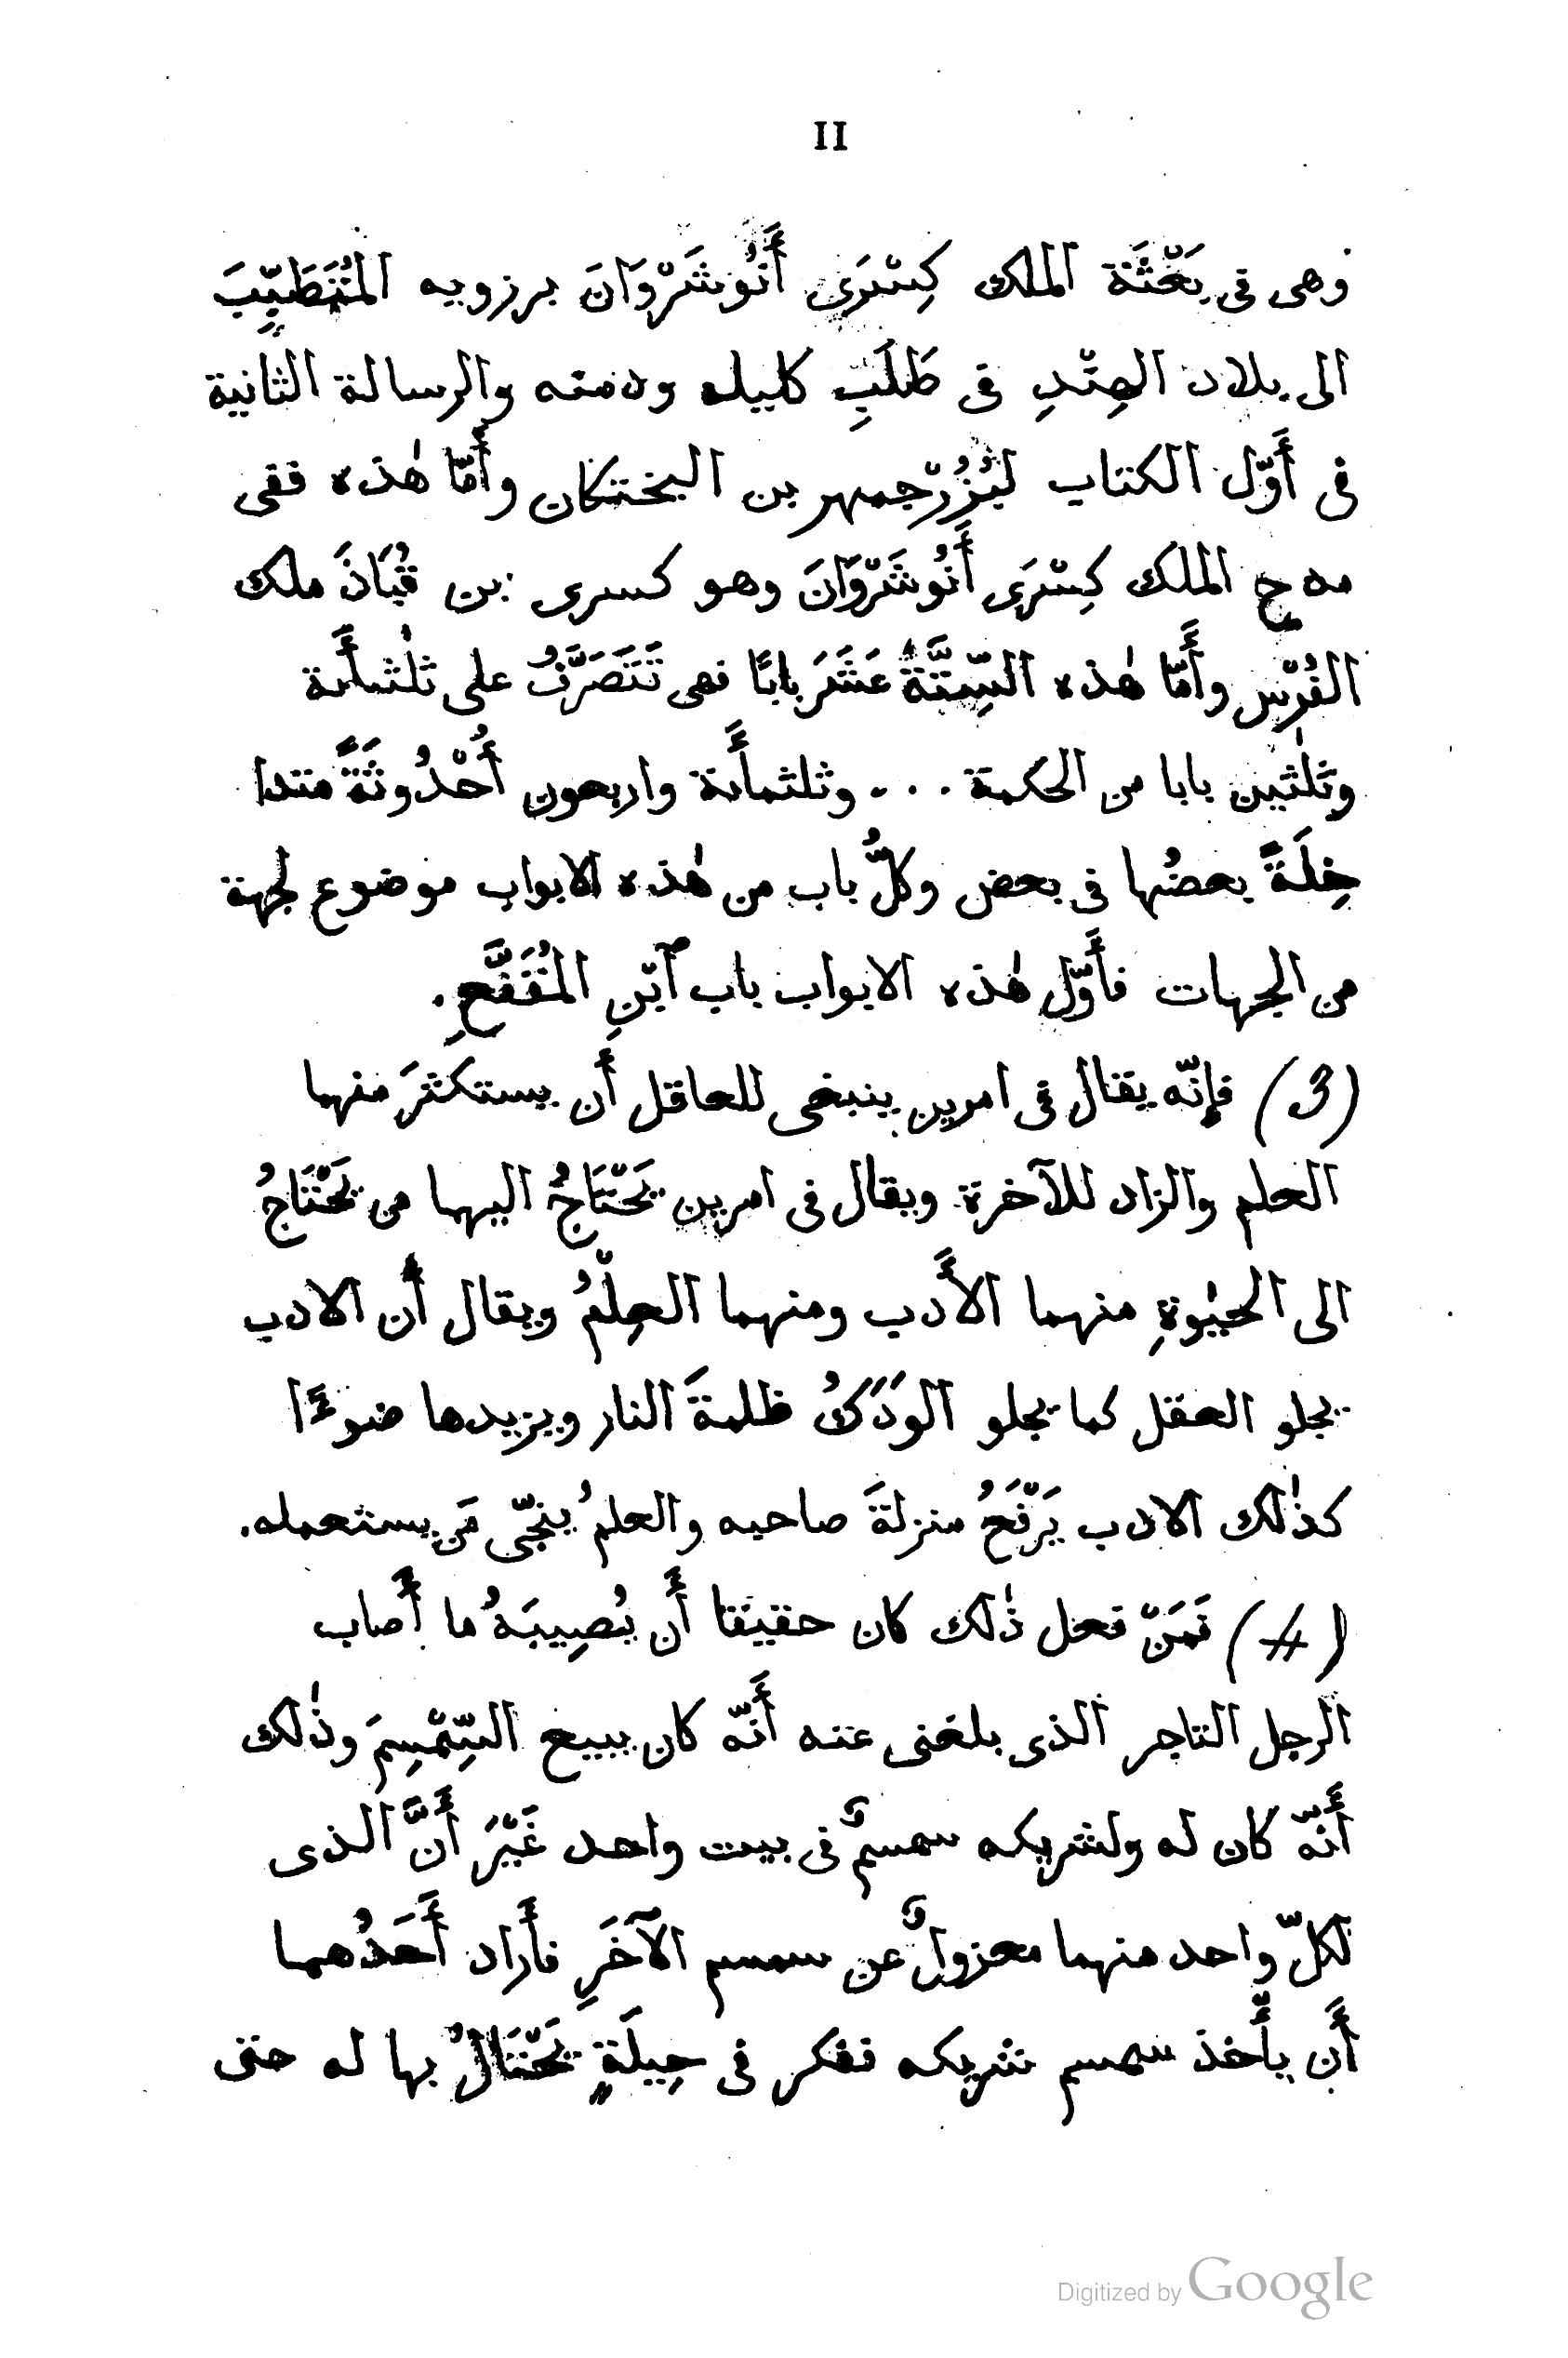 II
وهى فى بَعْثَة الملك كِسْرَى أَنُوشَرْوَانَ برزويه المُتَطَبِّبَ
الى بلاد الهِنْدِ فى طَلَبِ كليله ودمنه والرسالة الثانية
فى أَوّل الكتاب لبُزُرْجمهر بن البختكان وأَمّا هٰذه ففى
مدح الملك كِسْرَى أَنُوشَرْوَانَ وهو كسرى بن قُبَاذَ ملك
الفُرْس وأَمّا هٰذه السِّتَّةُ عَشَرَ بابًا فهى تَتَصَرَّفُ على ثلٰثمأَىة
وثلٰثين بابا من الحكمة . . . وثلثمأَىة واربعون أُحْدُوثَةً متدا
خِلَةً بعضُها فى بعض وكلُّ باب من هٰذه الابواب موضوع لجهة
من الجهات فأَوّل هٰذه الابواب باب ٱبْنِ المُقَفَّعِ.
(3) فإنّه يقال فى امرين ينبغى للعاقل أَن يستكثرَ منهما
العلم والزاد للآخرة ويقال فى امرين يَحْتَاجُ اليهما من يَحْتَاجُ
الى الحيٰوةِ منهما الأَدب ومنهما العِلْمُ ويقال أَن الادب
يجلو العقل كما يجلو الوَدَكُ ظلمةَ النار ويزيدها ضوءًا
كذٰلك الادب يَرْفَعُ منزلةَ صاحبه والعلمُ ينجّى مَن يستعمله.
(4) فَمَنْ فعل ذٰلك كان حقيقا أَن يُصِيبَهُ ما أَصاب
الرجل التاجر الذى بلغنى عنه أَنّه كان يبيع السِّمْسِمَ وذٰلك
أَنّه كان له ولشريكه سمسمٌ فى بيت واحد غَيْرَ أَنَّ الذى
لكلّ واحد منهما معزولٌ عن سمسم الآخَرِ فأَراد أَحَدُهما
أَن يأَخذ سمسم شريكه ففكر فى حِيلَةٍ يَحْتَالُ بها له حتى
Digitized by Google